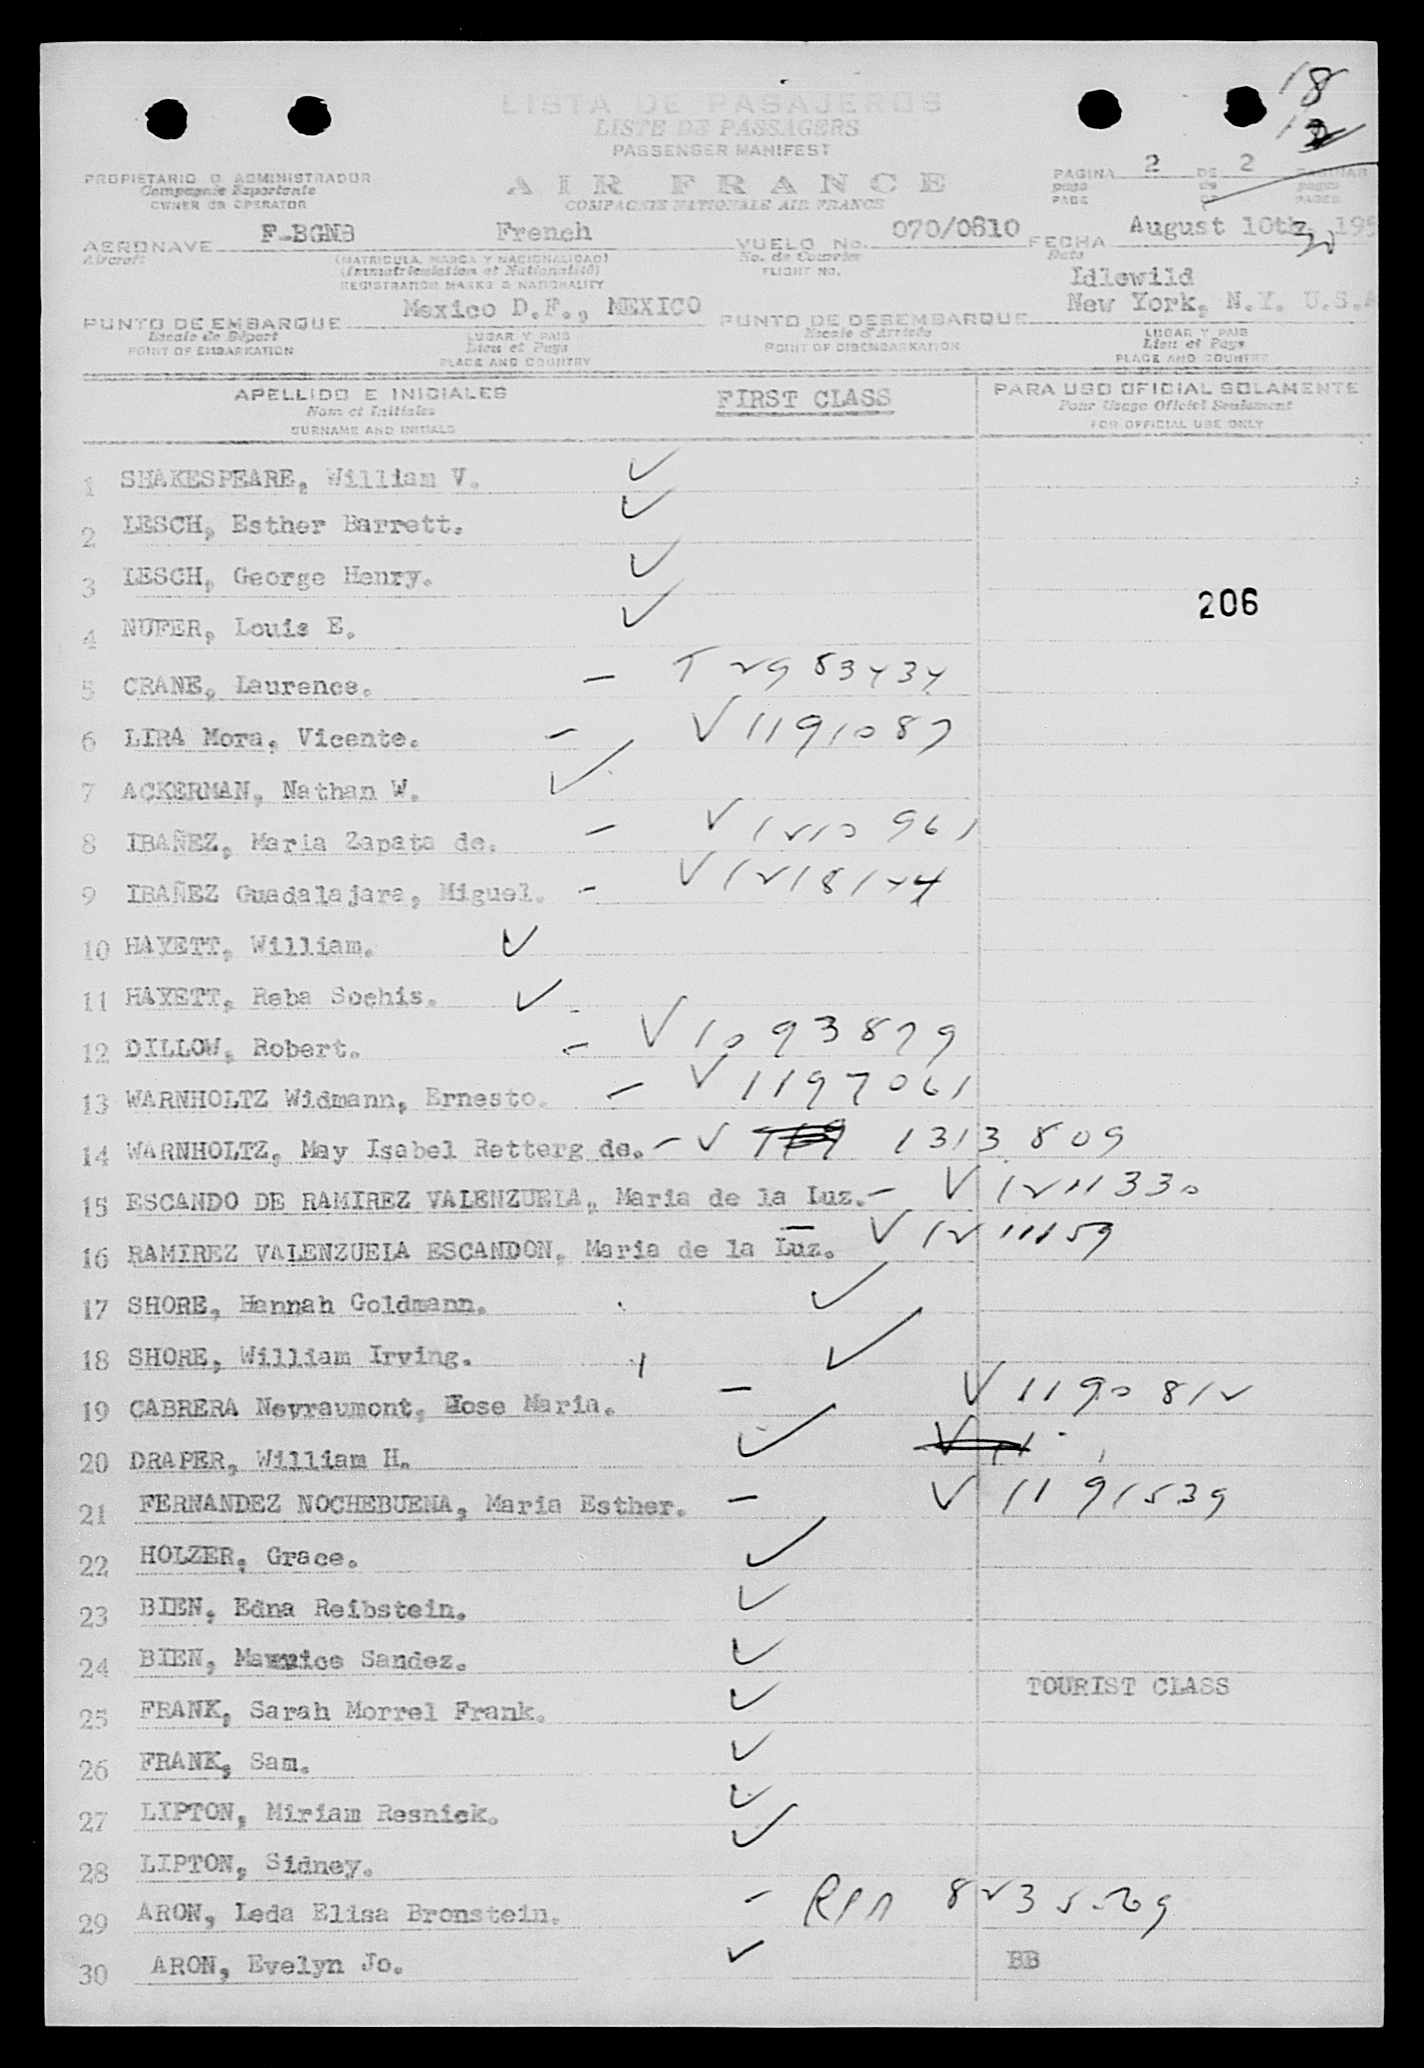 18
LISTA DE PASAJEROS
LISTE DE PASSAGERS
PASSENGER MANIFEST
PROPIETARIO O ADMINISTRADOR
Compagnie Exportante
OWNER OR OPERATOR
AIR FRANCE
COMPAGNIE NATIONALE AIR FRANCE
PAGINA 2 DE 2 PAGINAS
page de pages
PAGE OF PAGES
AERONAVE F-BGNB French VUELO No. 070/0810 FECHA August 10th, 195
Aircraft (MATRICULA, MARCA Y NACIONALIDAD) No. de Courrier Date
(Immatriculation et Nationalité) FLIGHT NO.
REGISTRATION MARKS & NATIONALITY
Idlewild
PUNTO DE EMBARQUE Mexico D.F., MEXICO PUNTO DE DESEMBARQUE New York, N.Y. U.S.A
Escale de Départ LUGAR Y PAIS Escale d'Arrivée LUGAR Y PAIS
POINT OF EMBARKATION Lieu et Pays POINT OF DISEMBARKATION Lieu et Pays
PLACE AND COUNTRY PLACE AND COUNTRY
APELLIDO E INICIALES FIRST CLASS PARA USO OFICIAL SOLAMENTE
Nom et Initiales Pour Usage Officiel Seulement
SURNAME AND INITIALS FOR OFFICIAL USE ONLY
1 SHAKESPEARE, William V.
2 LESCH, Esther Barrett.
3 LESCH, George Henry.
206
4 NUFER, Louis E.
5 CRANE, Laurence. — T 2983434
6 LIRA Mora, Vicente. — V 1191087
7 ACKERMAN, Nathan W.
8 IBAÑEZ, Maria Zapata de. — V 1210961
9 IBAÑEZ Guadalajara, Miguel. — V 1218124
10 HAYETT, William.
11 HAYETT, Reba Sochis.
12 DILLOW, Robert. — V 1093879
13 WARNHOLTZ Widmann, Ernesto. — V 1197061
14 WARNHOLTZ, May Isabel Retterg de. — V 1313809
15 ESCANDO DE RAMIREZ VALENZUELA, Maria de la Luz. — V 1211330
16 RAMIREZ VALENZUELA ESCANDON, Maria de la Luz. — V 1211159
17 SHORE, Hannah Goldmann.
18 SHORE, William Irving.
19 CABRERA Nevraumont, Hose Maria. — V 1190812
20 DRAPER, William H.
21 FERNANDEZ NOCHEBUENA, Maria Esther. — V 1191539
22 HOLZER, Grace.
23 BIEN, Edna Reibstein.
24 BIEN, Maurice Sandez.
TOURIST CLASS
25 FRANK, Sarah Morrel Frank.
26 FRANK, Sam.
27 LIPTON, Miriam Resnick.
28 LIPTON, Sidney.
29 ARON, Leda Elisa Bronstein. —
30 ARON, Evelyn Jo. BB